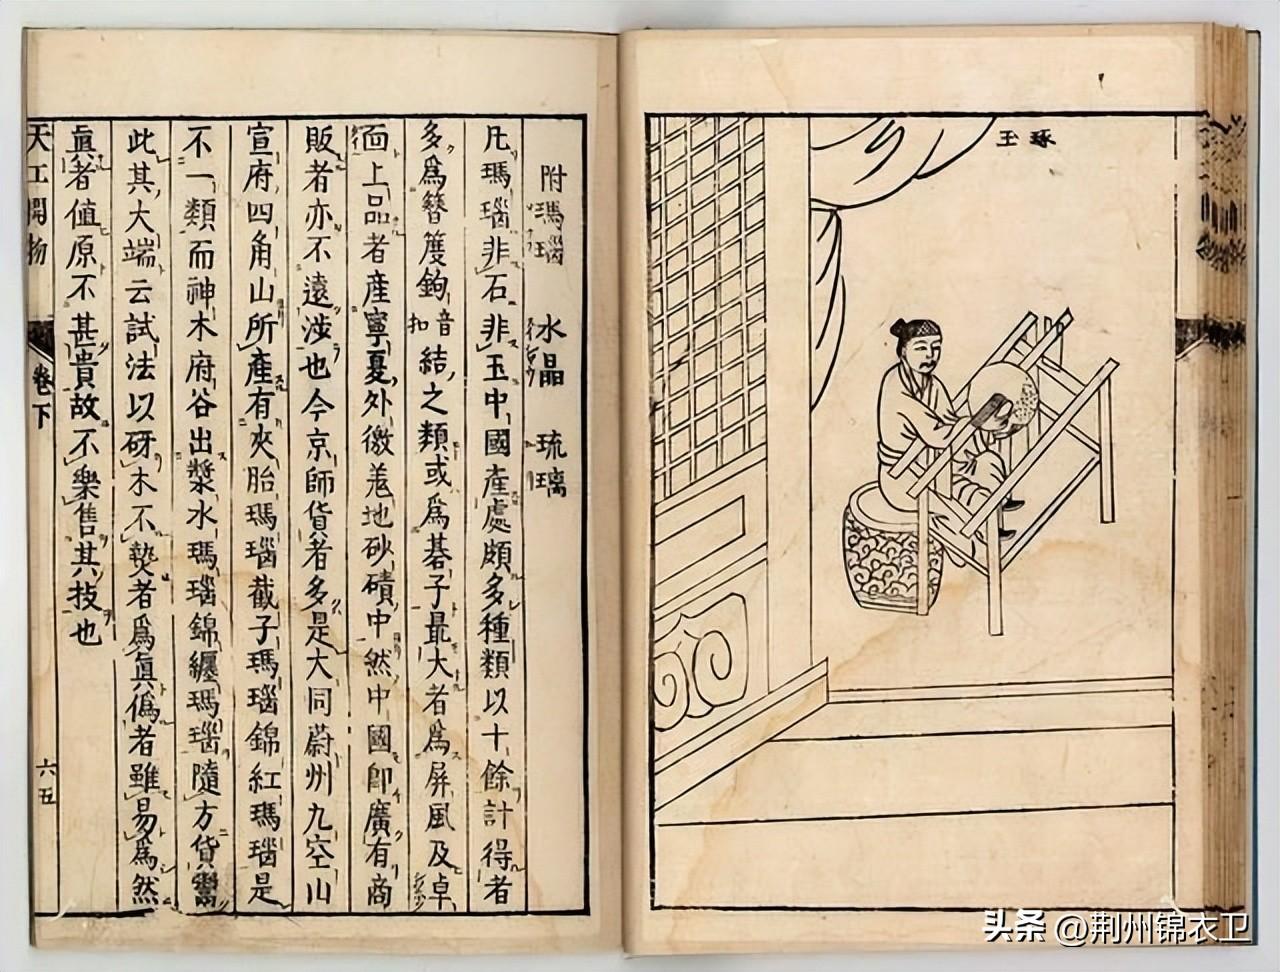 琢玉
附瑪瑙 水晶 琉璃
凡瑪瑙非石非玉中國產處頗多種類以十餘計得者
多爲簪篗鉤音扣結之類或爲碁子最大者爲屏風及卓
面上品者產寧夏外徼羌地砂磧中然中國卽廣有商
販者亦不遠涉也今京師貨者多是大同蔚州九空山
宣府四角山所產有夾胎瑪瑙截子瑪瑙錦紅瑪瑙是
不一類而神木府谷出漿水瑪瑙錦纏瑪瑙隨方貨鬻
此其大端云試法以砑木不𤍠者爲眞僞者雖易爲然
眞者値原不甚貴故不樂售其技也
天工開物 卷下 六五
头条 @荆州锦衣卫